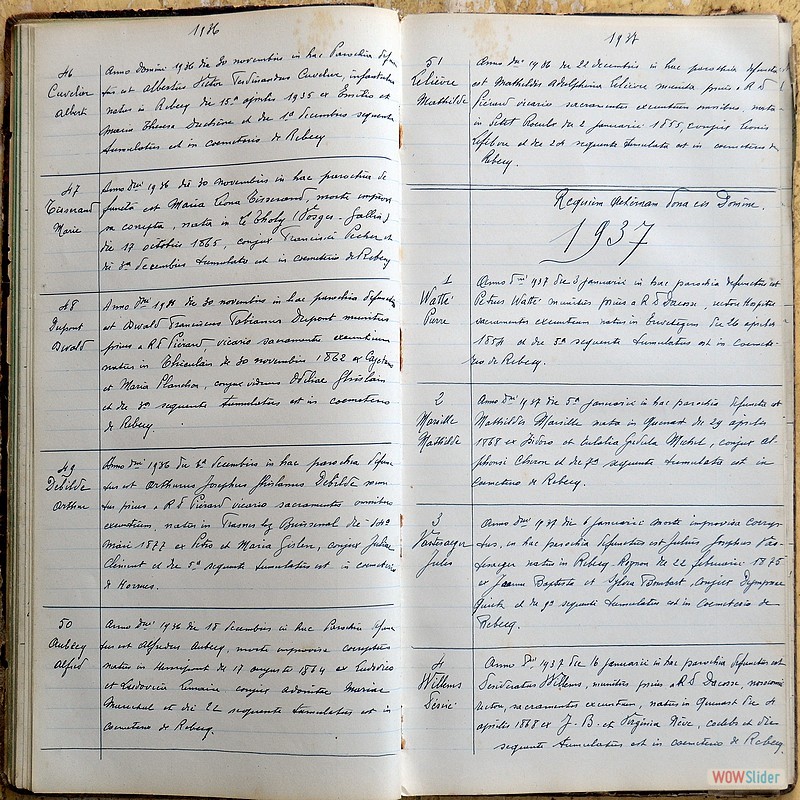 1936
46
Cuvelier
Albert
Anno Domini 1936 die 30 novembris in hac Parochia defunc
tus est Albertus Victor Ferdinandus Cuvelier, infantulus
natus in Rebecq die 15a aprilis 1935 ex Emilio et
Maria Theresa Duchêne et die 1a decembris sequente
tumulatus est in coemeterio de Rebecq
47
Tisserand
Marie
Anno Dni 1936 die 30 novembris in hac parochia de
functa est Maria Leona Tisserand, morte improvi
sa correpta, nata in Le Tholy (Vosges - Gallia)
die 17 octobris 1865, conjux Francisci Pecher et
die 3a decembris tumulata est in coemeterio de Rebecq
48
Dupont
Oswald
Anno Dni 1936 die 30 novembris in hac parochia defunctus
est Oswald Franciscus Fabianus Dupont munitus
prius a R D Piérard vicario sacramento exeuntium
natus in Thieulain die 30 novembris 1862 ex Cajetano
et Maria Planchon, conjux viduus Odiliae Ghislain
et die 3a sequente tumulatus est in coemeterio
de Rebecq.
49
Debilde
Arthur
Anno Dni 1936 die 2a decembris in hac parochia defunc
tus est Arthurus Josephus Ghislanus Debilde muni
tus prius a R D Piérard vicario sacramentis omnibus
exeuntium, natus in Frasnes lez Buissenal die
maii 1877 ex Petro et Maria Gislen, conjux Juliae
Clément et die 5a sequente tumulatus est in coemeterio
de Hennes.
50
Aubecq
Alfred
Anno Dni 1936 die 18 decembris in hac Parochia defunc
tus est Alfredus Aubecq, morte improvisa correptus
natus in Hennripont die 17 augusti 1864 ex Ludovico
et Ludovica Lemaire, conjux Mariae
Marechal et die 22 sequente tumulatus est in
coemeterio de Rebecq.
1937
51
Lelièvre
Mathilde
Anno Dni 1936 die 22 decembris in hac parochia defuncta
est Mathildes Adolphina Lelièvre munita prius a R D
Piérard vicario sacramentis exeuntium omnibus, nata
in Petit Roeulx die 2 januarii 1855, conjux Leonis
Lefebvre et die 24 sequente tumulata est in coemeterio de
Rebecq.
Requiem aeternam dona eis Domine.
1937
1
Watté
Pierre
Anno Dni 1937 die 3 januarii in hac parochia defunctus est
Petrus Watté munitus prius a R D Dacosse, rectore Hospitii
sacramentis exeuntium natus in Enghien die 26 aprilis
1854 et die 5a sequente tumulatus est in coemete
rio de Rebecq.
2
Marille
Mathilde
Anno Dni 1937 die 5a januarii in hac parochia defuncta est
Mathildes Marille nata in Quenast die 29 aprilis
1868 ex Isidoro et Eulalia Gudula Michel, conjux Al
phonsi Cheron et die 7a sequente tumulata est in
coemeterio de Rebecq.
3
Jules
Anno Dni 1937 die 6 januarii morte improvisa correp
tus, in hac parochia defunctus est Julius Josephus
natus in Rebecq-Rognon die 22 februarii 1875
ex Joanne Baptista et Sylvia Bombart conjux
et die 9a sequenti tumulatus est in coemeterio de
Rebecq.
4
Willems
Désiré
Anno Dni 1937 die 16 januarii in hac parochia defunctus est
Desideratus Willems, munitus prius a R D Dacosse, nosocomii
rectore, sacramentis exeuntium, natus in Quenast die 4
aprilis 1868 ex J. B. et Virginia Nève, caelebs et die
sequente tumulatus est in coemeterio de Rebecq.
WOWSlider